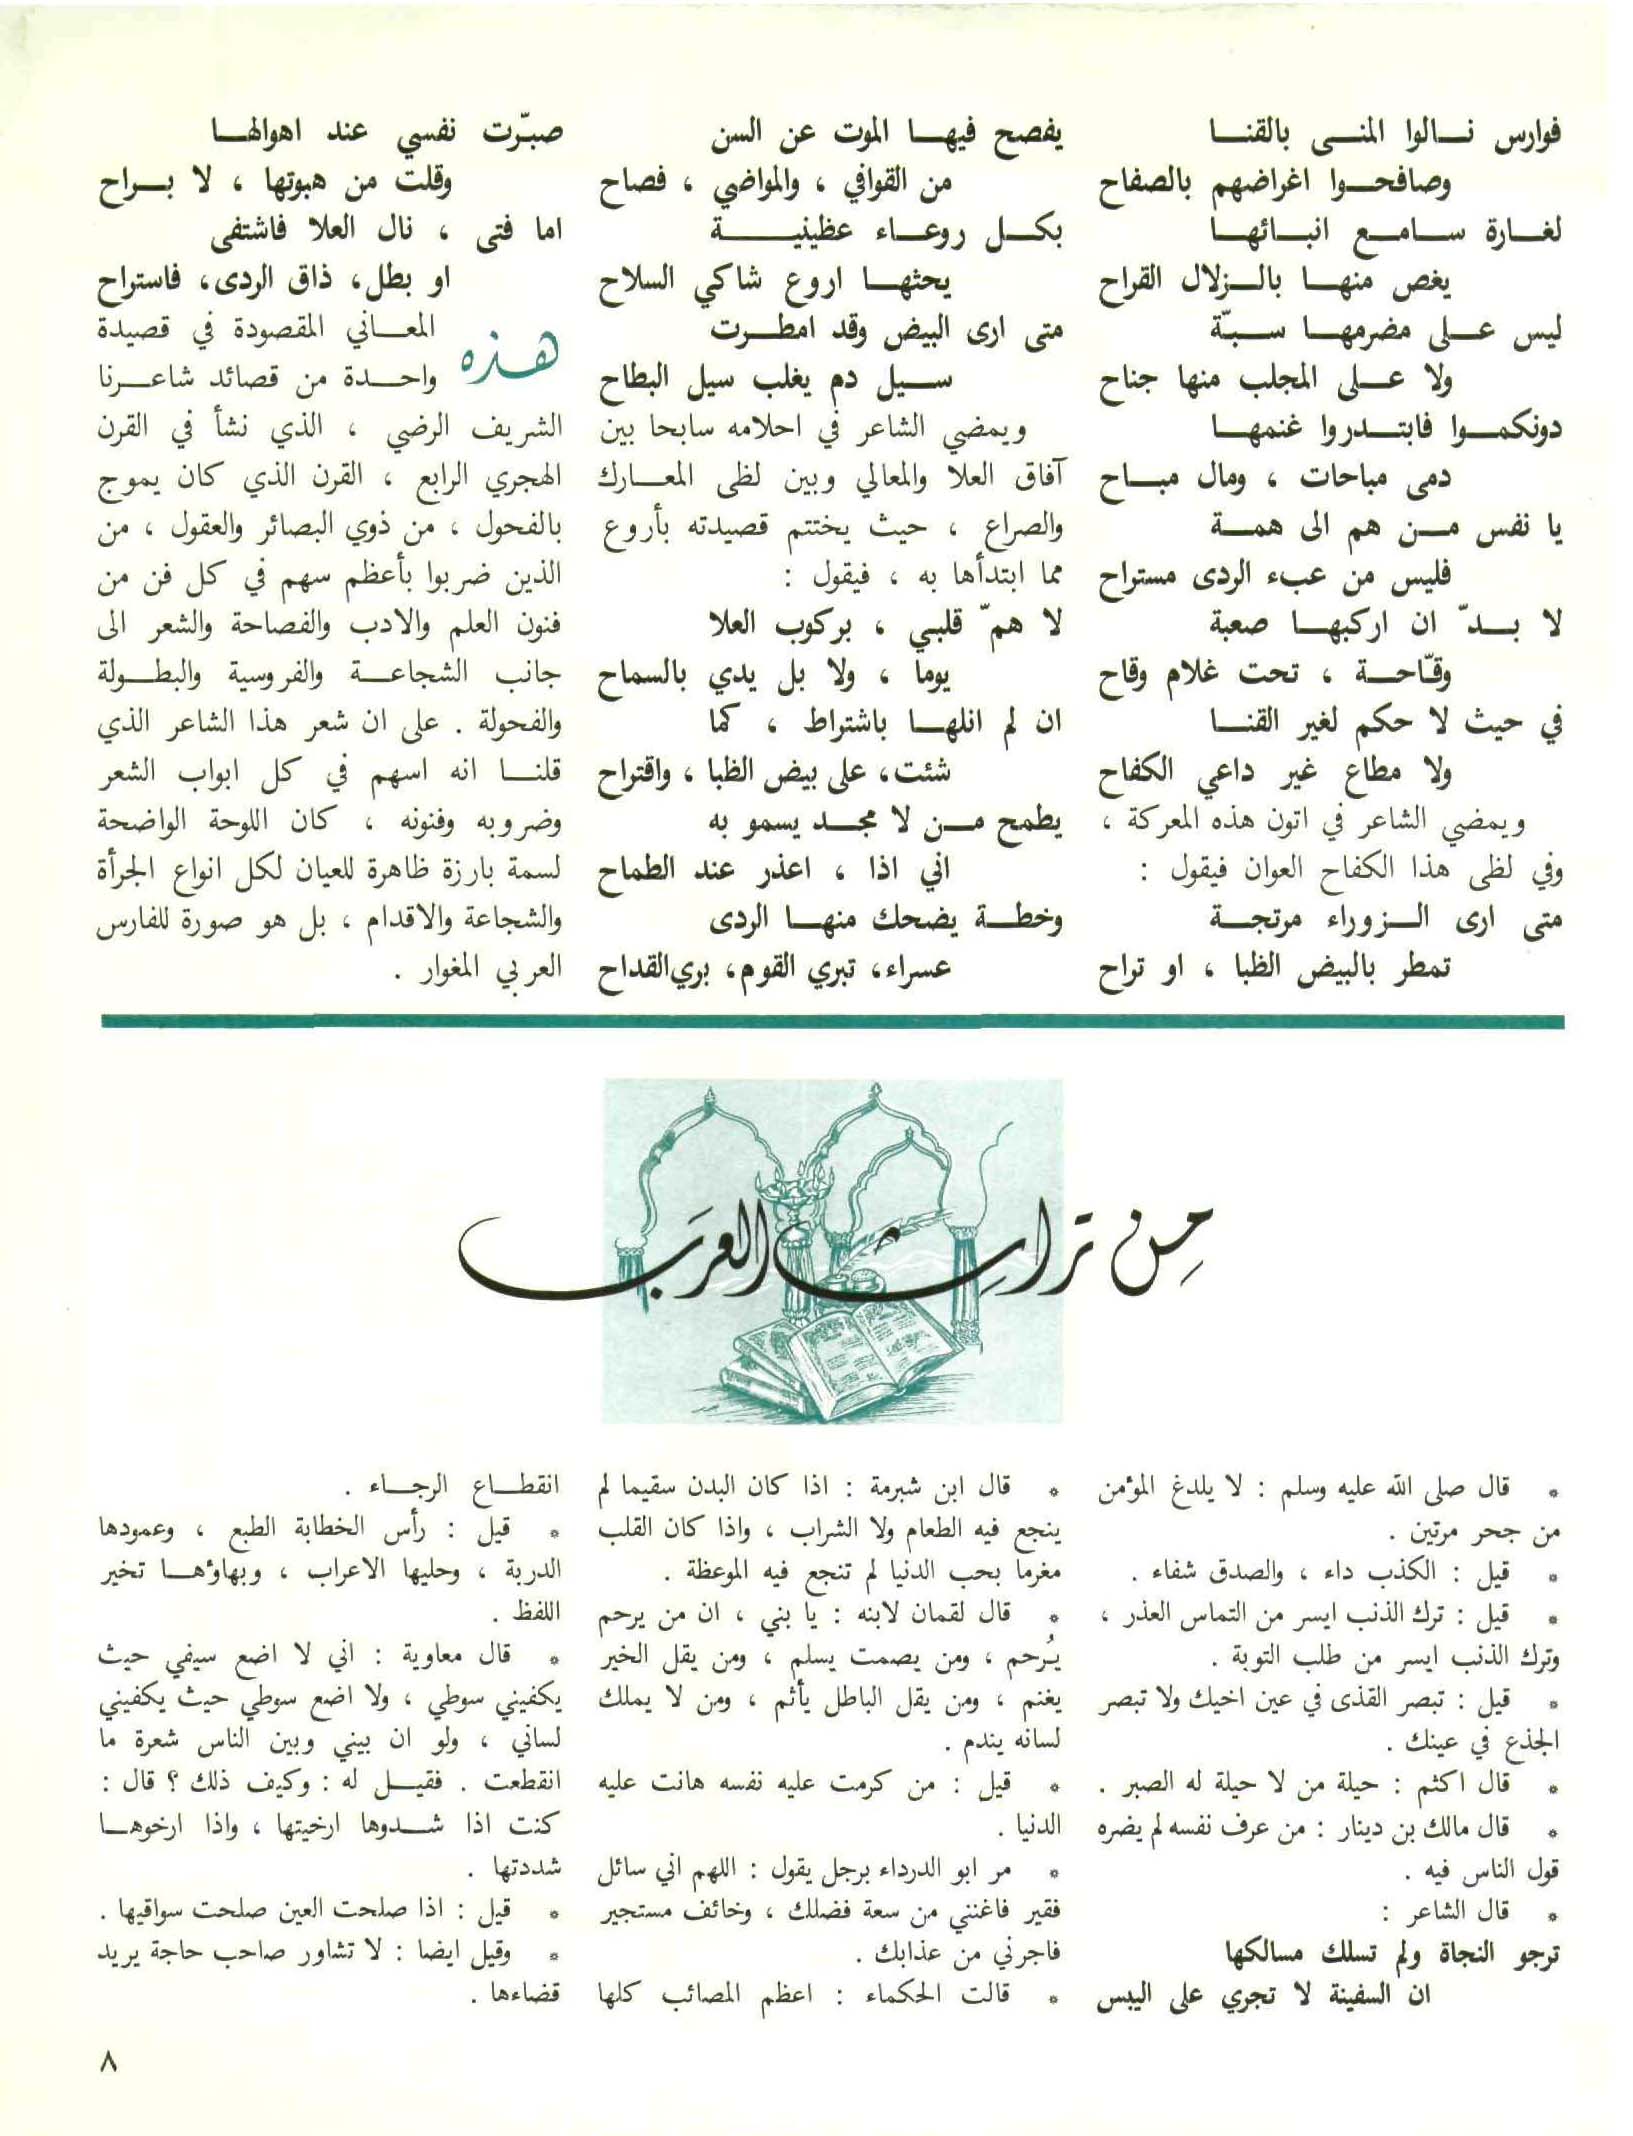 فوارس نالوا المنى بالقنا
وصافحوا اغراضهم بالصفاح
لغارة سامع انبائها
يغص منها بالزلال القراح
ليس على مضرمها سبّة
ولا على المجلب منها جناح
دونكموا فابتدروا غنمها
دمى مباحات ، ومال مباح
يا نفس من هم الى همة
فليس من عبء الردى مستراح
لا بدّ ان اركبها صعبة
وقّاحة ، تحت غلام وقاح
في حيث لا حكم لغير القنا
ولا مطاع غير داعي الكفاح
ويمضي الشاعر في اتون هذه المعركة ،
وفي لظى هذا الكفاح العوان فيقول :
متى ارى الزوراء مرتجة
تمطر بالبيض الظبا ، او تراح
يفصح فيها الموت عن السن
من القوافي ، والمواضي ، فصاح
بكل روعاء عظينية
يحثها اروع شاكي السلاح
متى ارى البيض وقد امطرت
سيل دم يغلب سيل البطاح
ويمضي الشاعر في احلامه سابحا بين
آفاق العلا والمعالي وبين لظى المعارك
والصراع ، حيث يختتم قصيدته بأروع
مما ابتدأها به ، فيقول :
لا همّ قلبي ، بركوب العلا
يوما ، ولا بل يدي بالسماح
ان لم انلها باشتراط ، كما
شئت، على بيض الظبا ، واقتراح
يطمح من لا مجد يسمو به
اني اذا ، اعذر عند الطماح
وخطة يضحك منها الردى
عسراء، تبري القوم، بري القداح
صبّرت نفسي عند اهوالها
وقلت من هبوتها ، لا براح
اما فتى ، نال العلا فاشتفى
او بطل، ذاق الردى، فاستراح
هذه المعاني المقصودة في قصيدة
واحدة من قصائد شاعرنا
الشريف الرضي ، الذي نشأ في القرن
الهجري الرابع ، القرن الذي كان يموج
بالفحول ، من ذوي البصائر والعقول ، من
الذين ضربوا بأعظم سهم في كل فن من
فنون العلم والادب والفصاحة والشعر الى
جانب الشجاعة والفروسية والبطولة
والفحولة . على ان شعر هذا الشاعر الذي
قلنا انه اسهم في كل ابواب الشعر
وضروبه وفنونه ، كان اللوحة الواضحة
لسمة بارزة ظاهرة للعيان لكل انواع الجرأة
والشجاعة والاقدام ، بل هو صورة للفارس
العربي المغوار .
مِن تراثِ العرَب
* قال صلى الله عليه وسلم : لا يلدغ المؤمن
من جحر مرتين .
* قيل : الكذب داء ، والصدق شفاء .
* قيل : ترك الذنب ايسر من التماس العذر ،
وترك الذنب ايسر من طلب التوبة .
* قيل : تبصر القذى في عين اخيك ولا تبصر
الجذع في عينك .
* قال اكثم : حيلة من لا حيلة له الصبر .
* قال مالك بن دينار : من عرف نفسه لم يضره
قول الناس فيه .
* قال الشاعر :
ترجو النجاة ولم تسلك مسالكها
ان السفينة لا تجري على اليبس
* قال ابن شبرمة : اذا كان البدن سقيما لم
ينجع فيه الطعام ولا الشراب ، واذا كان القلب
مغرما بحب الدنيا لم تنجع فيه الموعظة .
* قال لقمان لابنه : يا بني ، ان من يرحم
يُرحم ، ومن يصمت يسلم ، ومن يقل الخير
يغنم ، ومن يقل الباطل يأثم ، ومن لا يملك
لسانه يندم .
* قيل : من كرمت عليه نفسه هانت عليه
الدنيا .
* مر ابو الدرداء برجل يقول : اللهم اني سائل
فقير فاغنني من سعة فضلك ، وخائف مستجير
فاجرني من عذابك .
* قالت الحكماء : اعظم المصائب كلها
انقطاع الرجاء .
* قيل : رأس الخطابة الطبع ، وعمودها
الدربة ، وحليها الاعراب ، وبهاؤها تخير
اللفظ .
* قال معاوية : اني لا اضع سيفي حيث
يكفيني سوطي ، ولا اضع سوطي حيث يكفيني
لساني ، ولو ان بيني وبين الناس شعرة ما
انقطعت . فقيل له : وكيف ذلك ؟ قال :
كنت اذا شدوها ارخيتها ، واذا ارخوها
شددتها .
* قيل : اذا صلحت العين صلحت سواقيها .
* وقيل ايضا : لا تشاور صاحب حاجة يريد
قضاءها .
٨